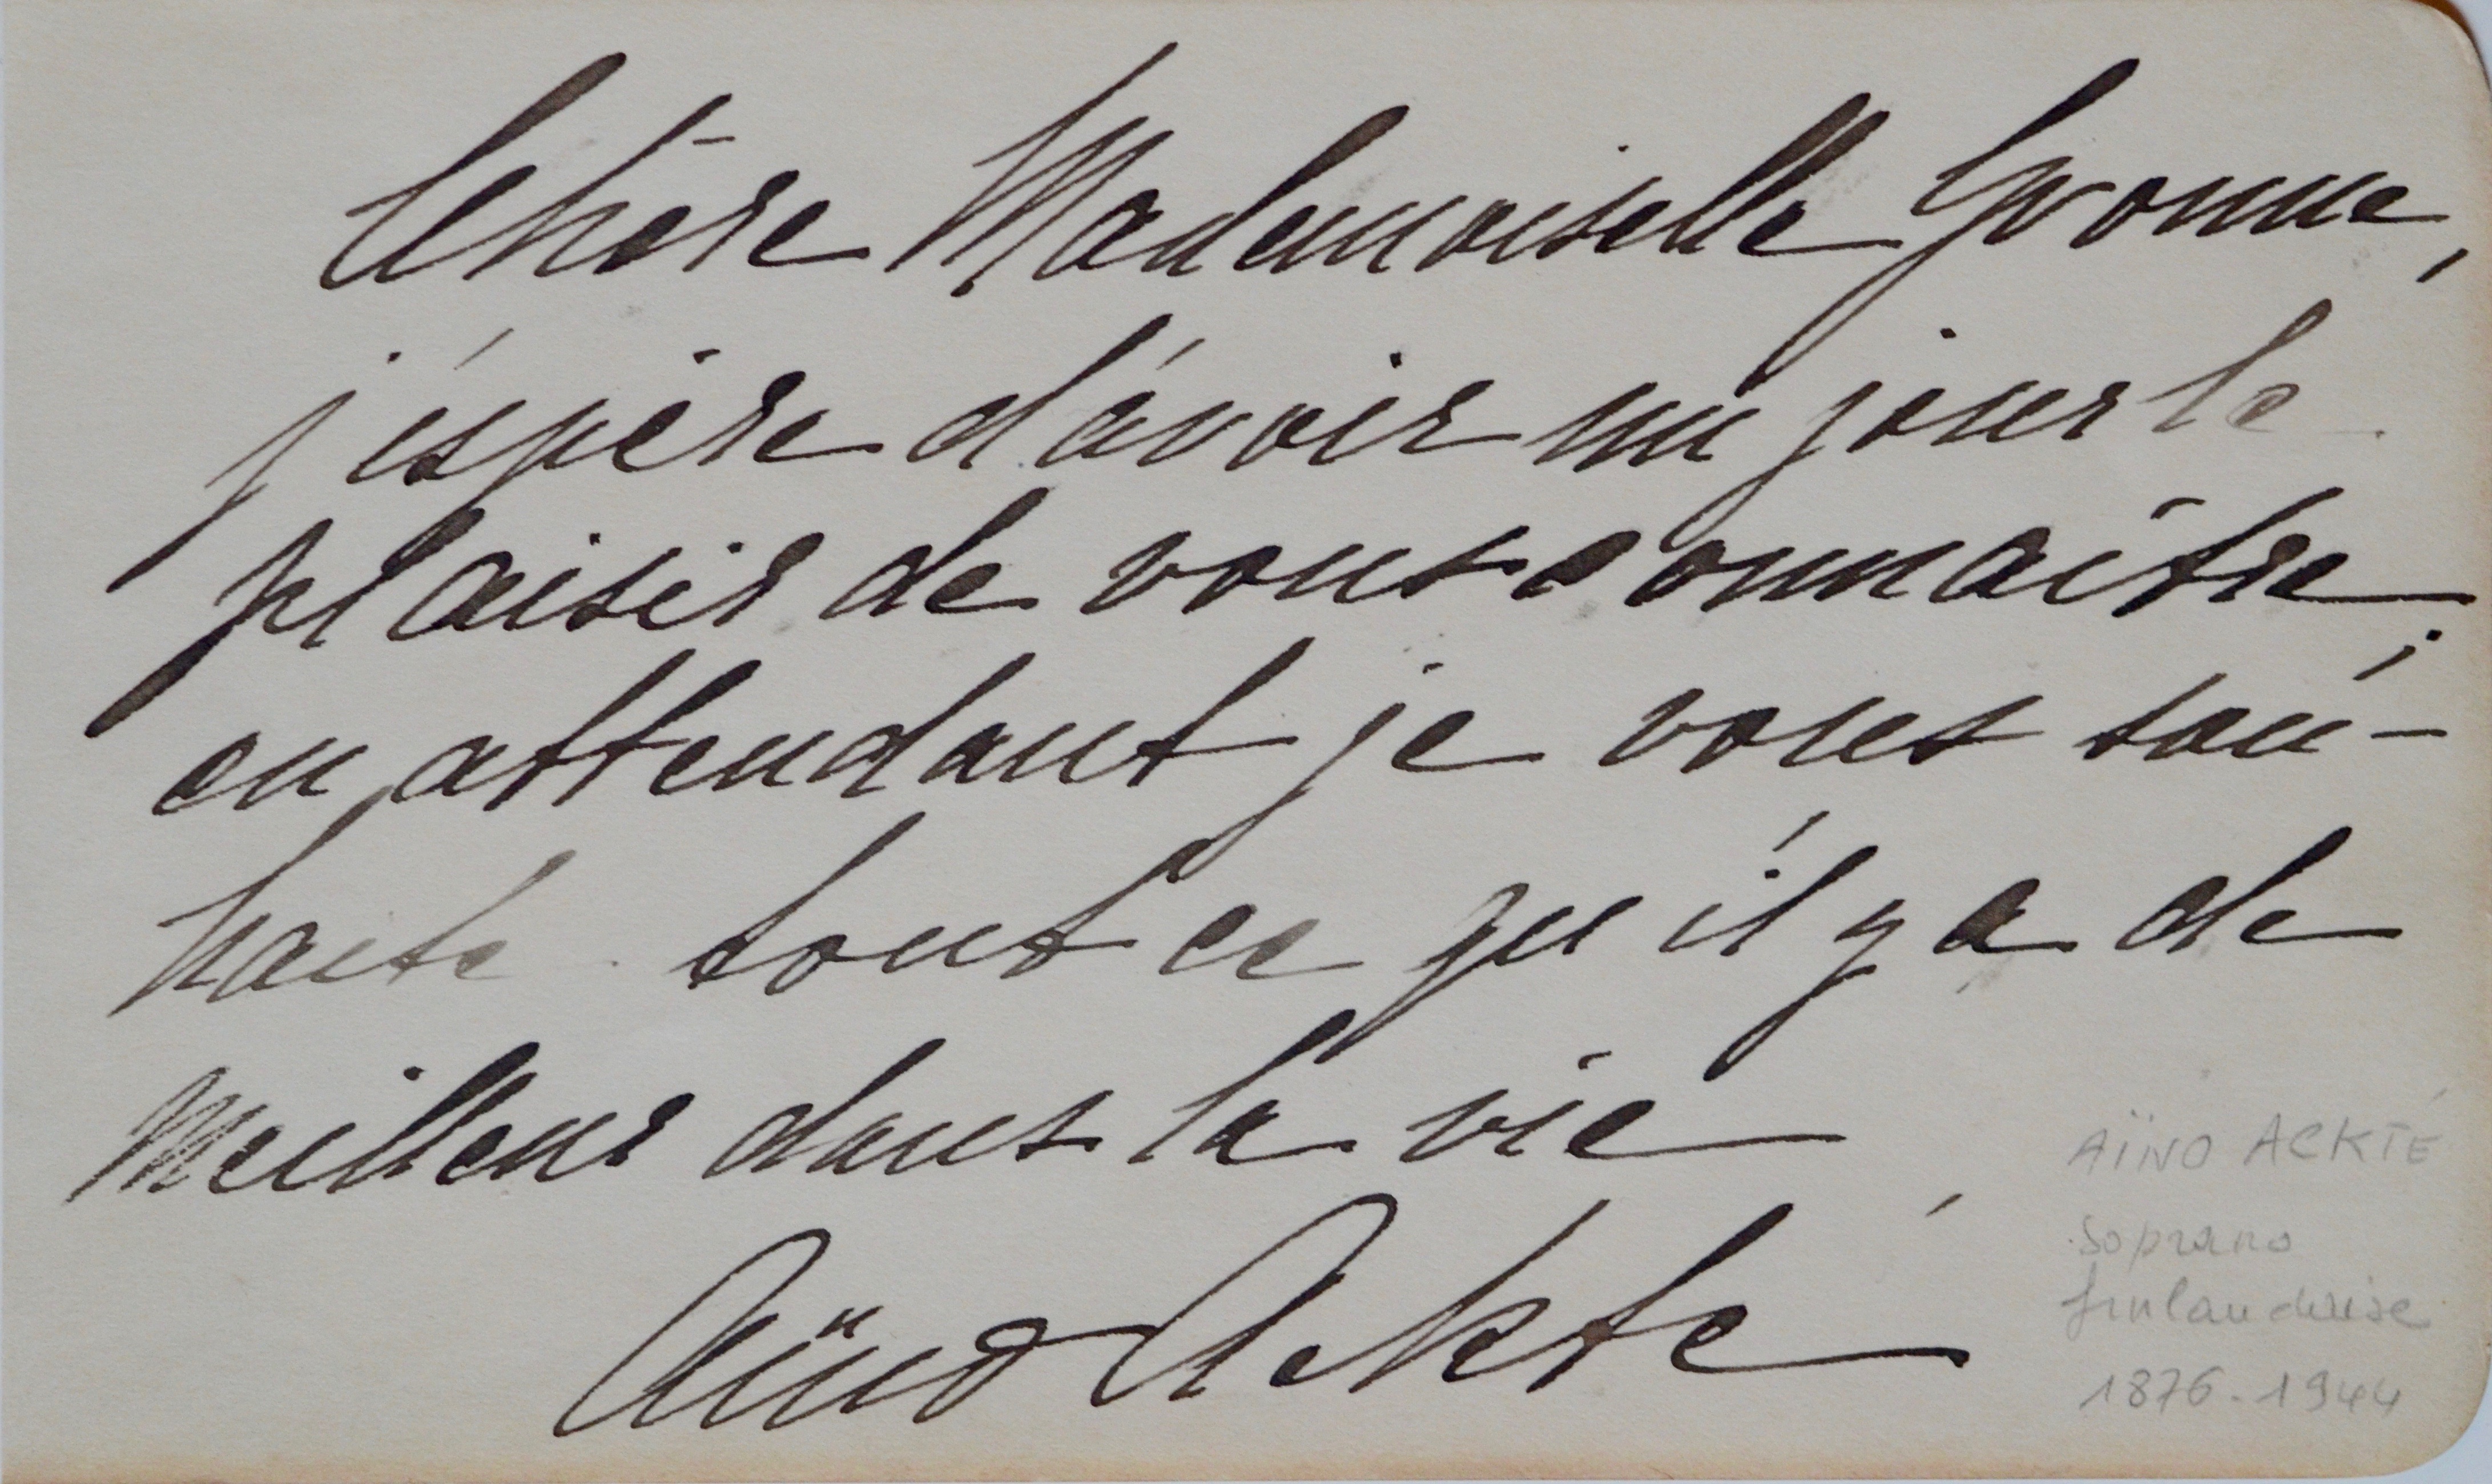 Chère Mademoiselle Yvonne,
j'espère d'avoir un jour le
plaisir de vous connaître;
en attendant je vous sou-
haite tout ce qu'il y a de
meilleur dans la vie
Aïno Ackté
AÏNO ACKTÉ
Soprano
finlandaise
1876-1944